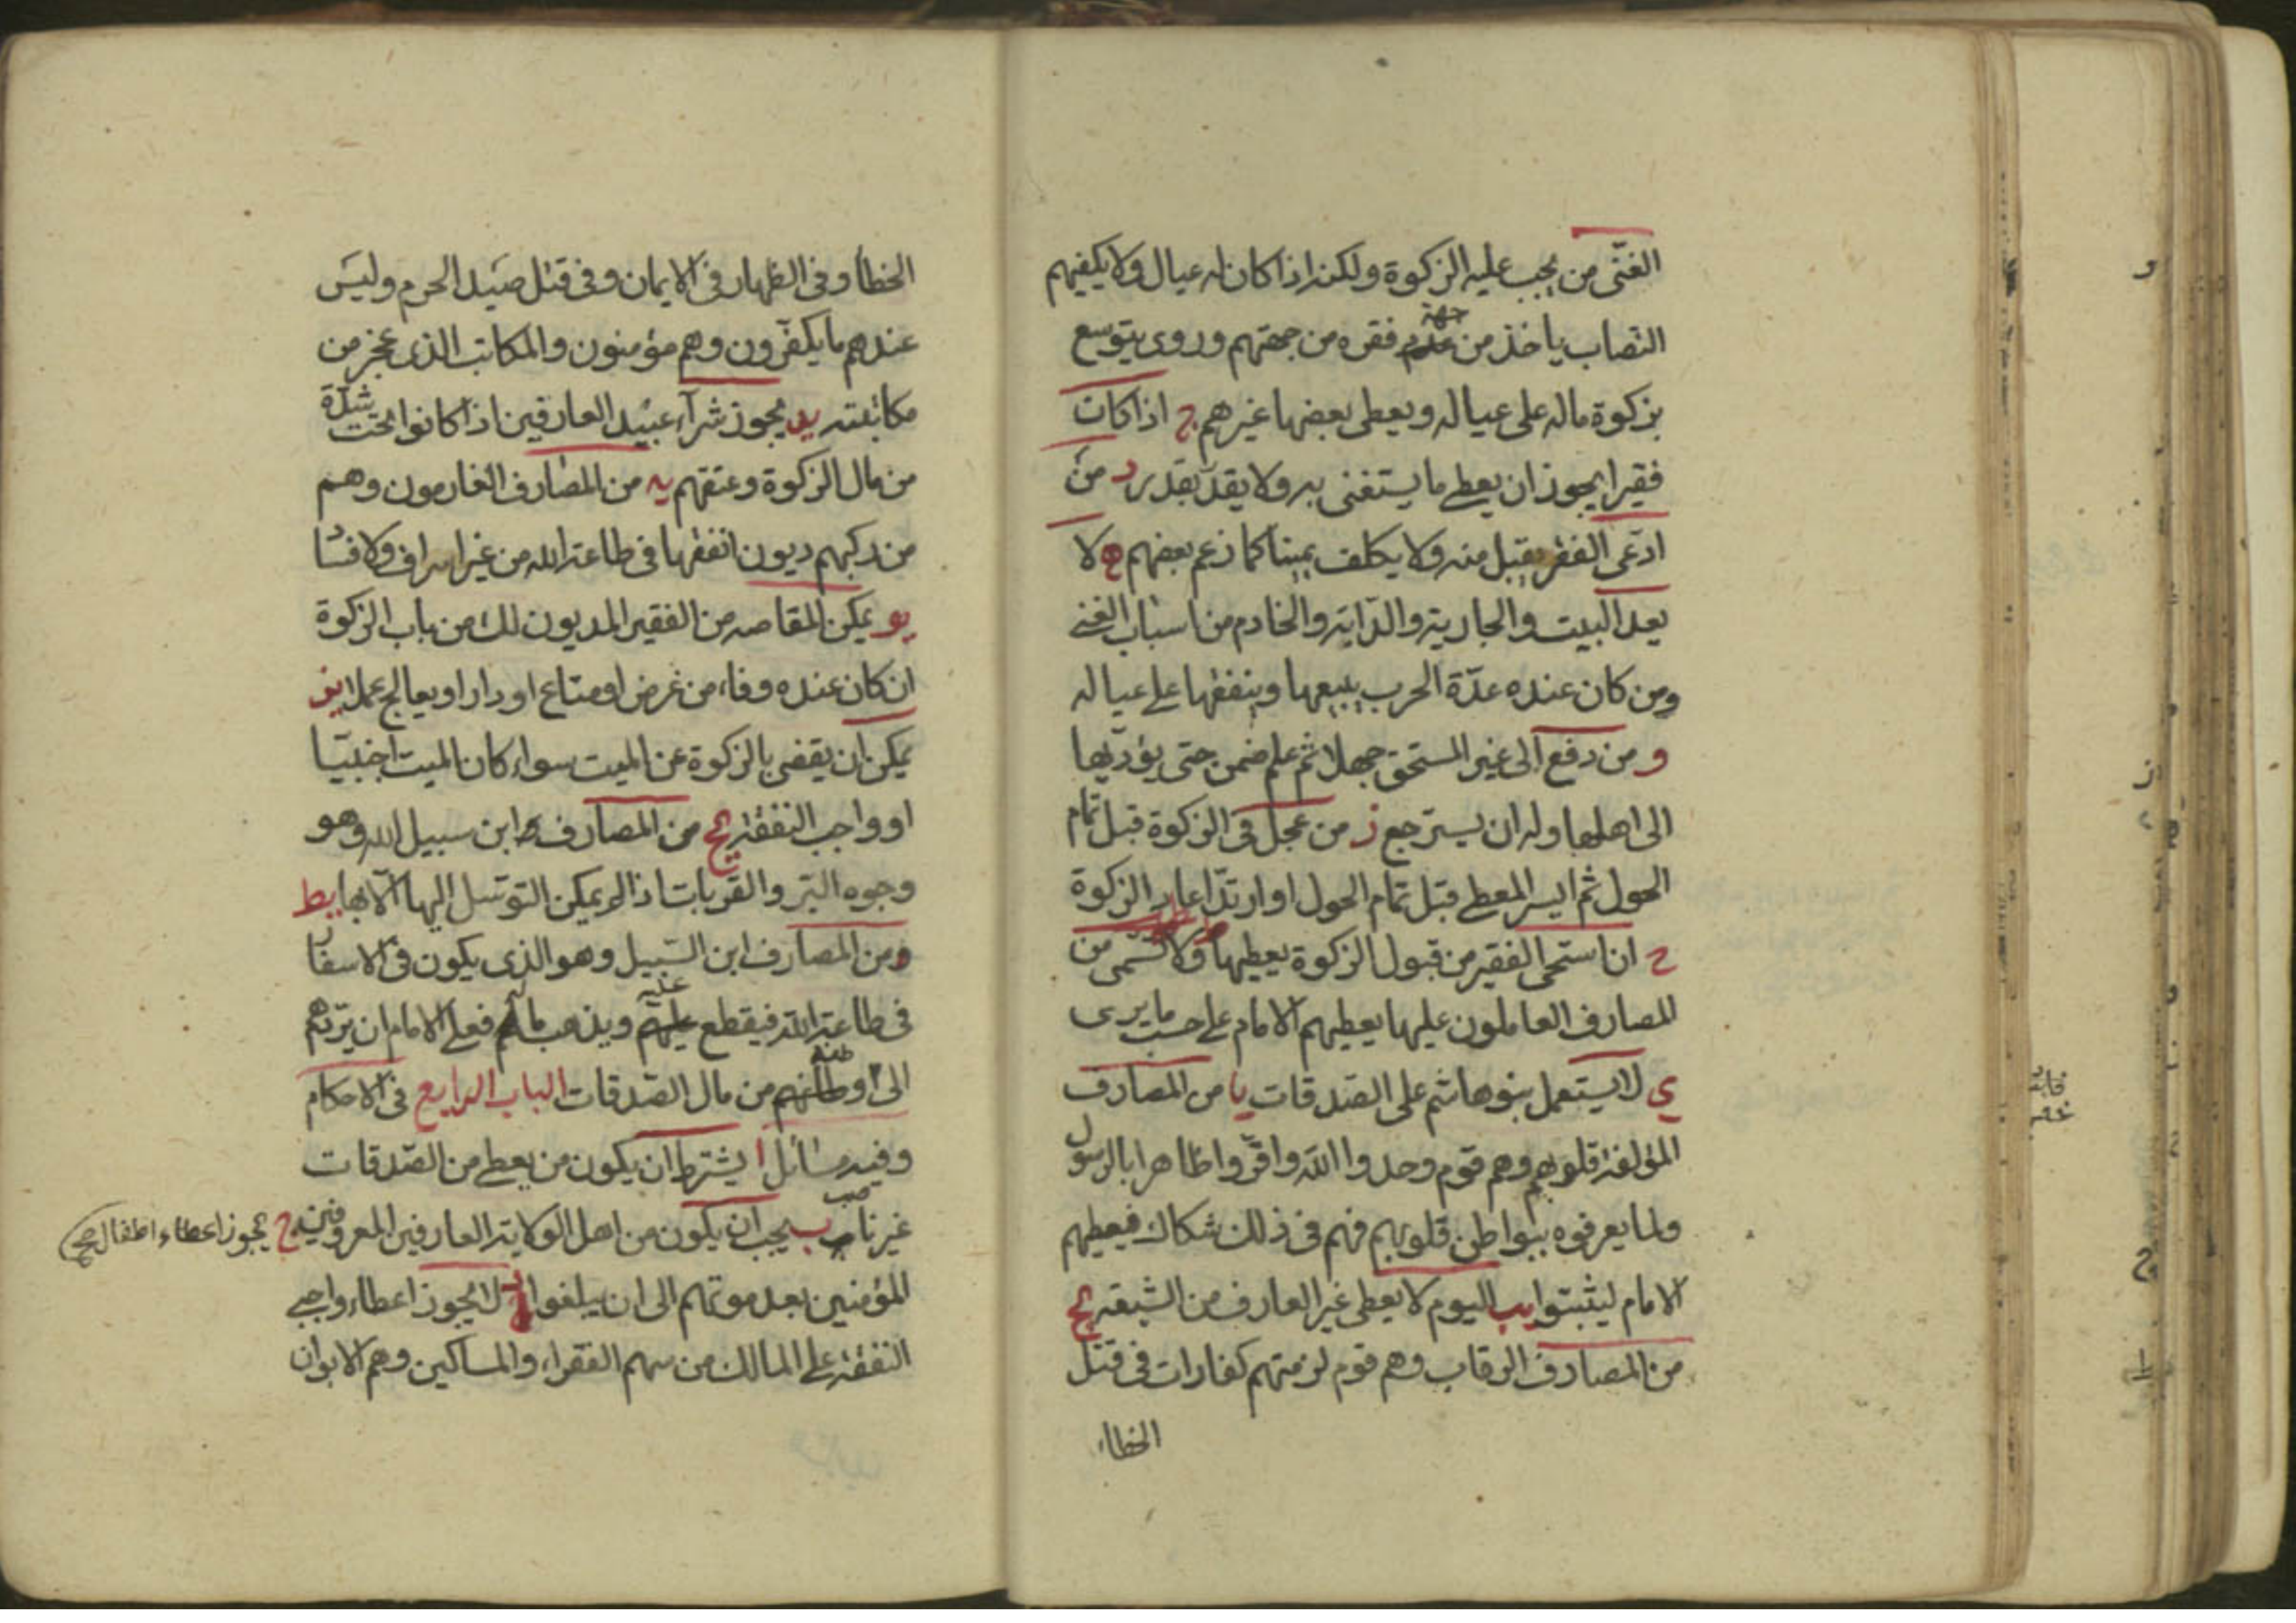 الغنّى من يجب عليه الزكوة ولكنه اذا كان له عيال ولا يكفيهم
النصاب ياخذ من جهة فقره من جهتهم وروى يتوسع
بزكوة ماله على عياله ويعطى بعضها غيرهم ج اذا كان
فقيرا يجوز ان يعطى ما يستغنى به ولا يقدّر بقدر د من
ادّعى الفقر يقبل منه ولا يكلف يمينا كما زعم بعضهم ه لا
يعد البيت والجارية والدابة والخادم من اسباب الغنى
ومن كان عنده عدّة الحرب يبيعها وينفقها على عياله
و من دفع الى غير المستحق جهلا ثم علم ضمن حتى يؤدّيها
الى اهلها وله ان يسترجع ز من عجل فى الزكوة قبل تمام
الحول ثم ايسر المعطى قبل تمام الحول او ارتدّ اعاد الزكوة
ح ان استحى الفقير من قبول الزكوة يعطيها ولا تسمّى ط من
المصارف العاملون عليها يعطيهم الامام على حسب ما يرى
ى لا يستعمل بنو هاشم على الصّدقات يا من المصارف
المؤلفة قلوبهم وهم قوم وحدوا الله واقرّوا ظاهرا بالرسول
ولما يعرفوه ببواطن قلوبهم فهم فى ذلك شكاك فيعطيهم
الامام ليثبتوا يب اليوم لا يعطى غير العارف من الشيعة يج
من المصارف الرقاب وهم قوم لزمتهم كفارات فى قتل
الخطاء
الخطأ وفى الظهار فى الايمان وفى قتل صيد الحرم وليس
عندهم ما يكفّرون وهم مؤمنون والمكاتب الذى عجز من
مكاتبته يد يجوز شرآء عبيد العارفين اذا كانوا تحت شدّة
من مال الزكوة وعتقهم يه من المصارف الغارمون وهم
من ركبهم ديون انفقها فى طاعة الله من غير اسراف ولا فساد
يو يمكن المقاصه من الفقير المديون لك من باب الزكوة
ان كان عنده وفاء من عرض او متاع او دار او يعالج عملا يز
يمكن ان يقضى بالزكوة عن الميت سواء كان الميت اجنبيّا
او واجب النفقة يح من المصارف سبيل الله وهو
وجوه البّر والقربات اذا لم يمكن التوسّل اليها الّا بها يط
ومن المصارف ابن السّبيل وهو الذى يكون فى الاسفار
فى طاعة الله فيقطع عليه ويذهب ماله فعلى الامام ان يردّهم
الى وطنه من مال الصّدقات الباب الرابع فى الاحكام
وفيه مسائل ا يشترط ان يكون من يعطى من الصّدقات
غير ناصب ب يجب ان يكون من اهل الولاية العارفين المعروفين ج يجوز اعطاء اطفال صح
المؤمنين بعد موتهم الى ان يبلغوا د لا يجوز اعطاء واجبى
النفقة على المالك من سهم الفقراء والمساكين وهم الابوان